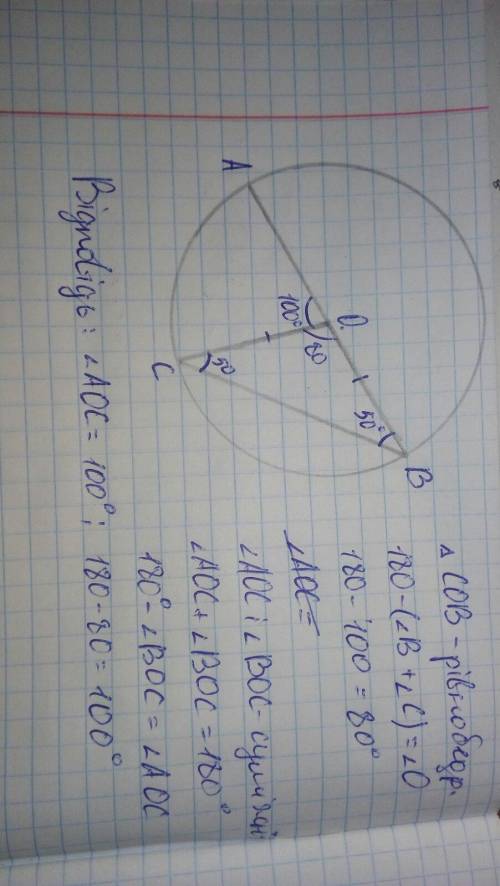 A
O
B
C
100°
80
50°
50
△ COB - рівнобедр.
180-(∠B+∠C)=∠O
180-100=80°
∠AOC=
∠AOC і ∠BOC - суміжні
∠AOC+∠BOC=180°
180°-∠BOC=∠AOC
Відповідь: ∠AOC=100°; 180-80=100°